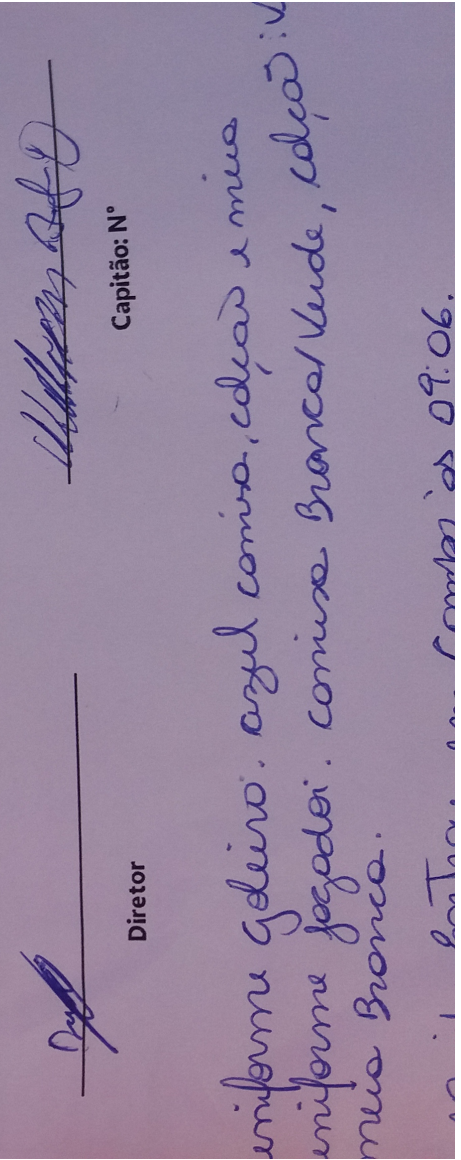 Diretor Capitão: N°
uniforme Goleiro. azul camisa, calção e meia
uniforme jogador. camisa Branca/Verde, calção: V
meia Branca.
Entrou em Campo às 09:06.